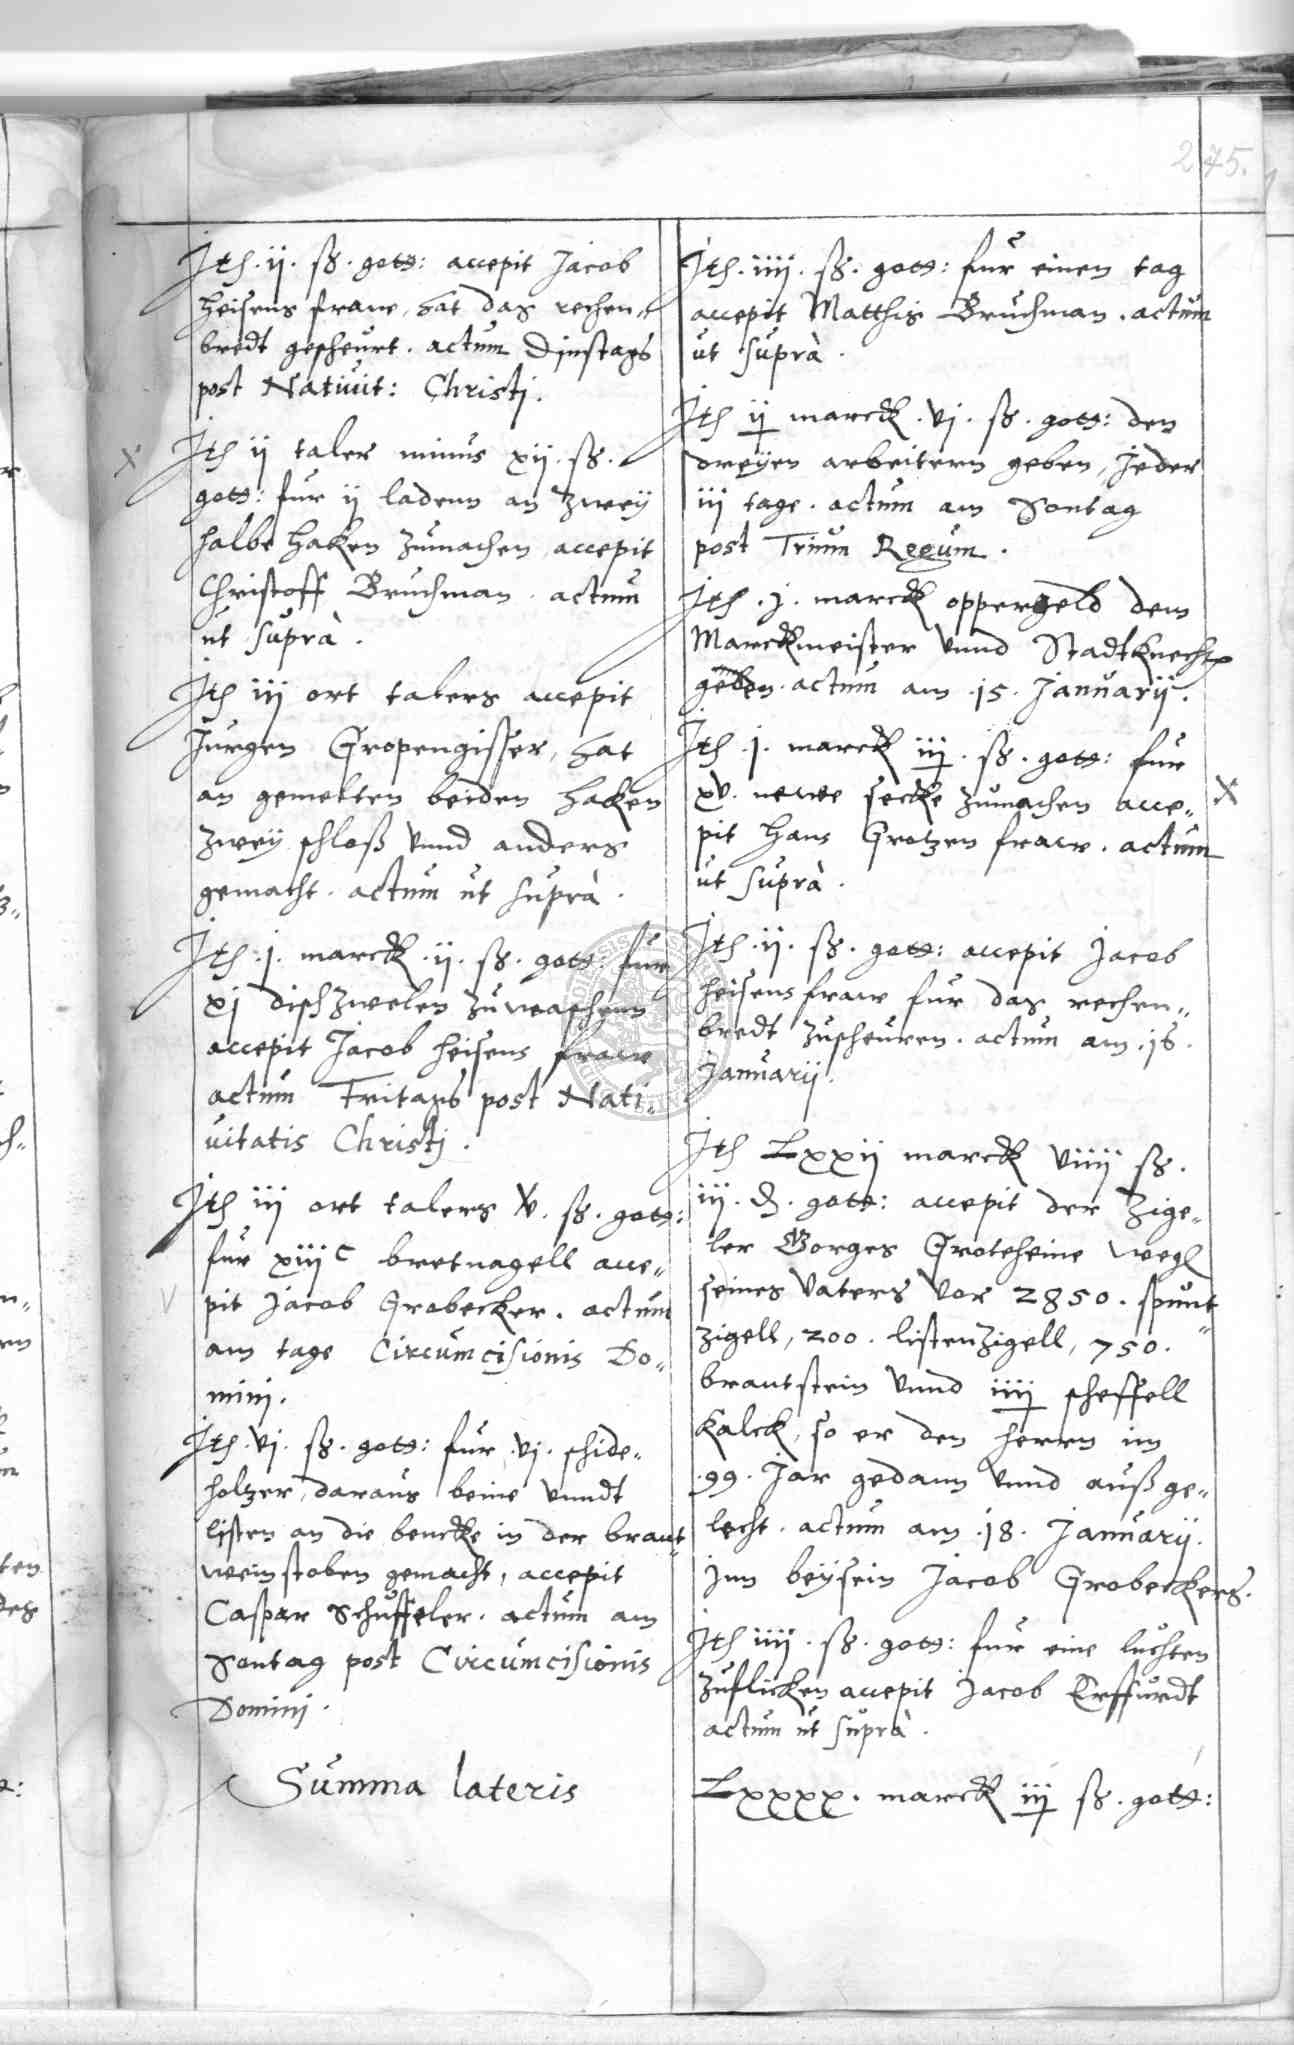 275.
Jth. ij. ß. gott: accepit Jacob
heisens fraw, hat das rechen„
bredt gescheurt. actum Dinstags
post Natiuit: Christj.
Jth ij taler minus xij. ß.
gott: fur ij ladenn an zweÿ
halbe haken zumachen accepit
Christoff Bruchman. actum
ut suprà.
Jth iij ort talers accepit
Jurgen Gropengisser, hat
an gemelten beiden hacken
zweÿ schloß vnnd anders
gemacht. actum ut suprà.
Jth. j. marck. ij. ß. gott: fur
xj disch zwelen zuwaschenn
accepit Jacob heisens fraw
actum Fritags post Nati„
uitatis Christj.
Jth iij ort talers v. ß. gott:
fur xiijc bretnagell acce„
pit Jacob Grobecker. actum
am tage Circumcisionis Do„
minj.
Jth. vj. ß. gott: fur. vj. schide„
holtzer, daraus beine vnndt
listen an die bencke in der brant„
wein stoben gemacht, accepit
Caspar Schuffeler. actum am
Sontag post Circumcisionis
Dominj.
Summa lateris
Jth. iiij. ß. gott: fur einen tag
accepit Matthis Bruchman. actum
ut suprà.
Jth ij marck. vj. ß. gott: den
dreÿen arbeitern geben, Jeder
iij tage. actum am Sontag
post Trium Regum.
Jth. j. marck oppergeld dem
Marckmeister vnnd Stadtknecht
geben. actum am. 15. Januarij.
Jth. j. marck iij. ß. gott: fur
xv. newe secke zumachen acce„
pit Hans Grotzen fraw. actum
ut suprà.
Jth. ij. ß. gott: accepit Jacob
heisens fraw fur das rechen„
bredt zuscheuren. actum am. 16.
Januarij.
Jth Lxxij marck viiij ß.
iij. d. gott: accepit der Zige„
ler Borges Groteheine wegen
seines vaters vor 2850. spunt„
zigell, 200. listenzigell, 750.
brantstein vnnd iiij scheffell
Kalck, so er den herrn im
.99. Jar gedann vnnd auß ge„
lecht. actum am. 18. Januarij.
Jnn beÿsein Jacob Grobeckers.
Jth iiij. ß. gott: fur eine luchten
zuflicken accepit Jacob Erffurdt
actum ut suprà.
Lxxxx. marck iij ß. gott: